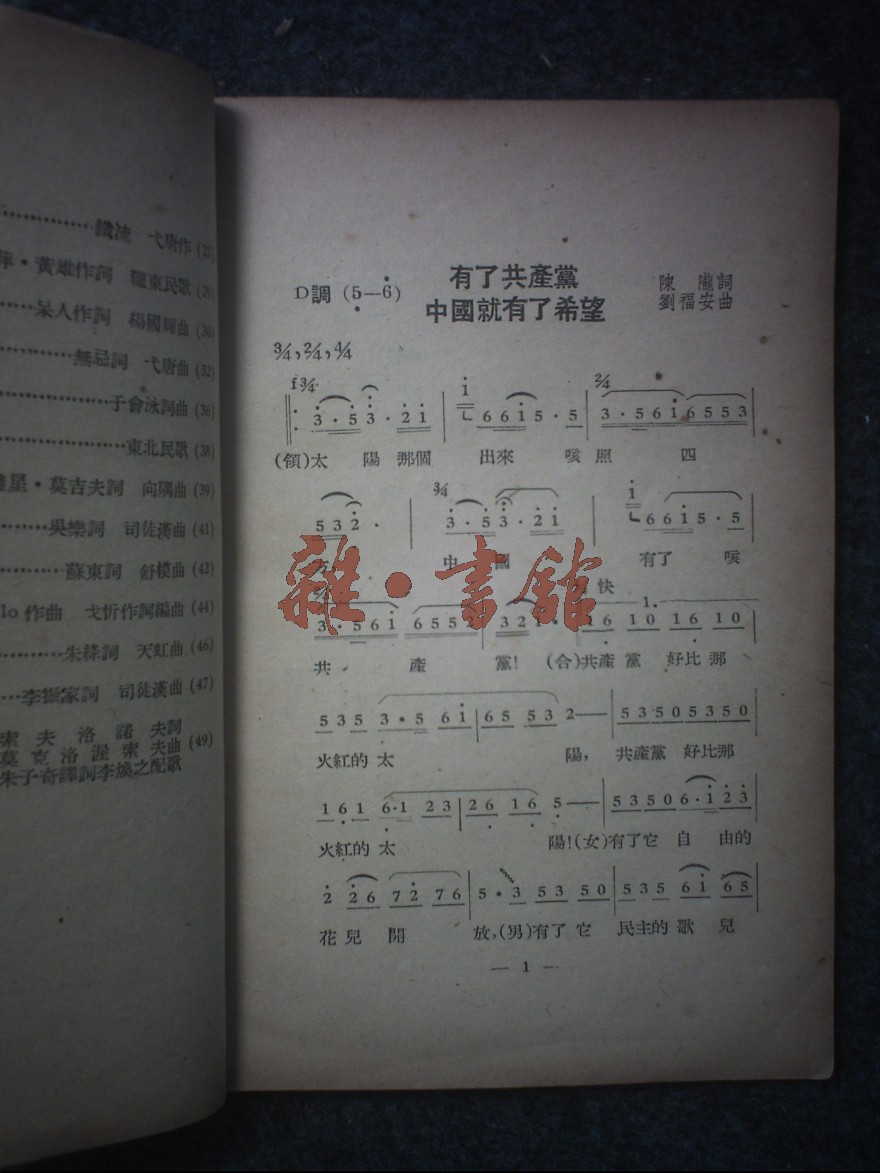 鐵流　弋唐作 (27)
黃雄作詞　隴東民歌 (29)
呆人作詞　楊國輝曲 (30)
無忌詞　弋唐曲 (32)
于會泳詞曲 (36)
東北民歌 (38)
星·莫吉夫詞　向隅曲 (39)
吳樂詞　司徒漢曲 (41)
蘇東詞　舒模曲 (42)
lo 作曲　戈忻作詞編曲 (44)
朱絳詞　天虹曲 (46)
李振家詞　司徒漢曲 (47)
索夫洛諾夫詞
莫克洛渥索夫曲 (49)
朱子奇譯詞李煥之配歌
有了共產黨
中國就有了希望
D調 (5—6)
陳隴詞
劉福安曲
3/4, 2/4, 4/4
f 3/4　2/4
3·5 3·21 | 1 661 5·5 | 3·561 6553 |
(領)太 陽 那個 出來 咳 照 四
3/4
532· | 3·5 3·21 | 1 661 5·5 |
中 國 有了 咳
快　1.
3·561 655 | 321· | 16 10 16 10 |
共 產 黨! (合)共產 黨 好比 那
535 3·5 61 | 65 53 2— | 5350 5350 |
火紅的 太 陽, 共產黨 好比那
161 6·1 23 | 26 16 5— | 5350 6·123 |
火紅的 太 陽!(女)有了它 自 由的
2 26 72 76 | 5·3 53 50 | 535 61 65 |
花 兒 開 放,(男)有了 它 民主的 歌 兒
— 1 —
雜·書館